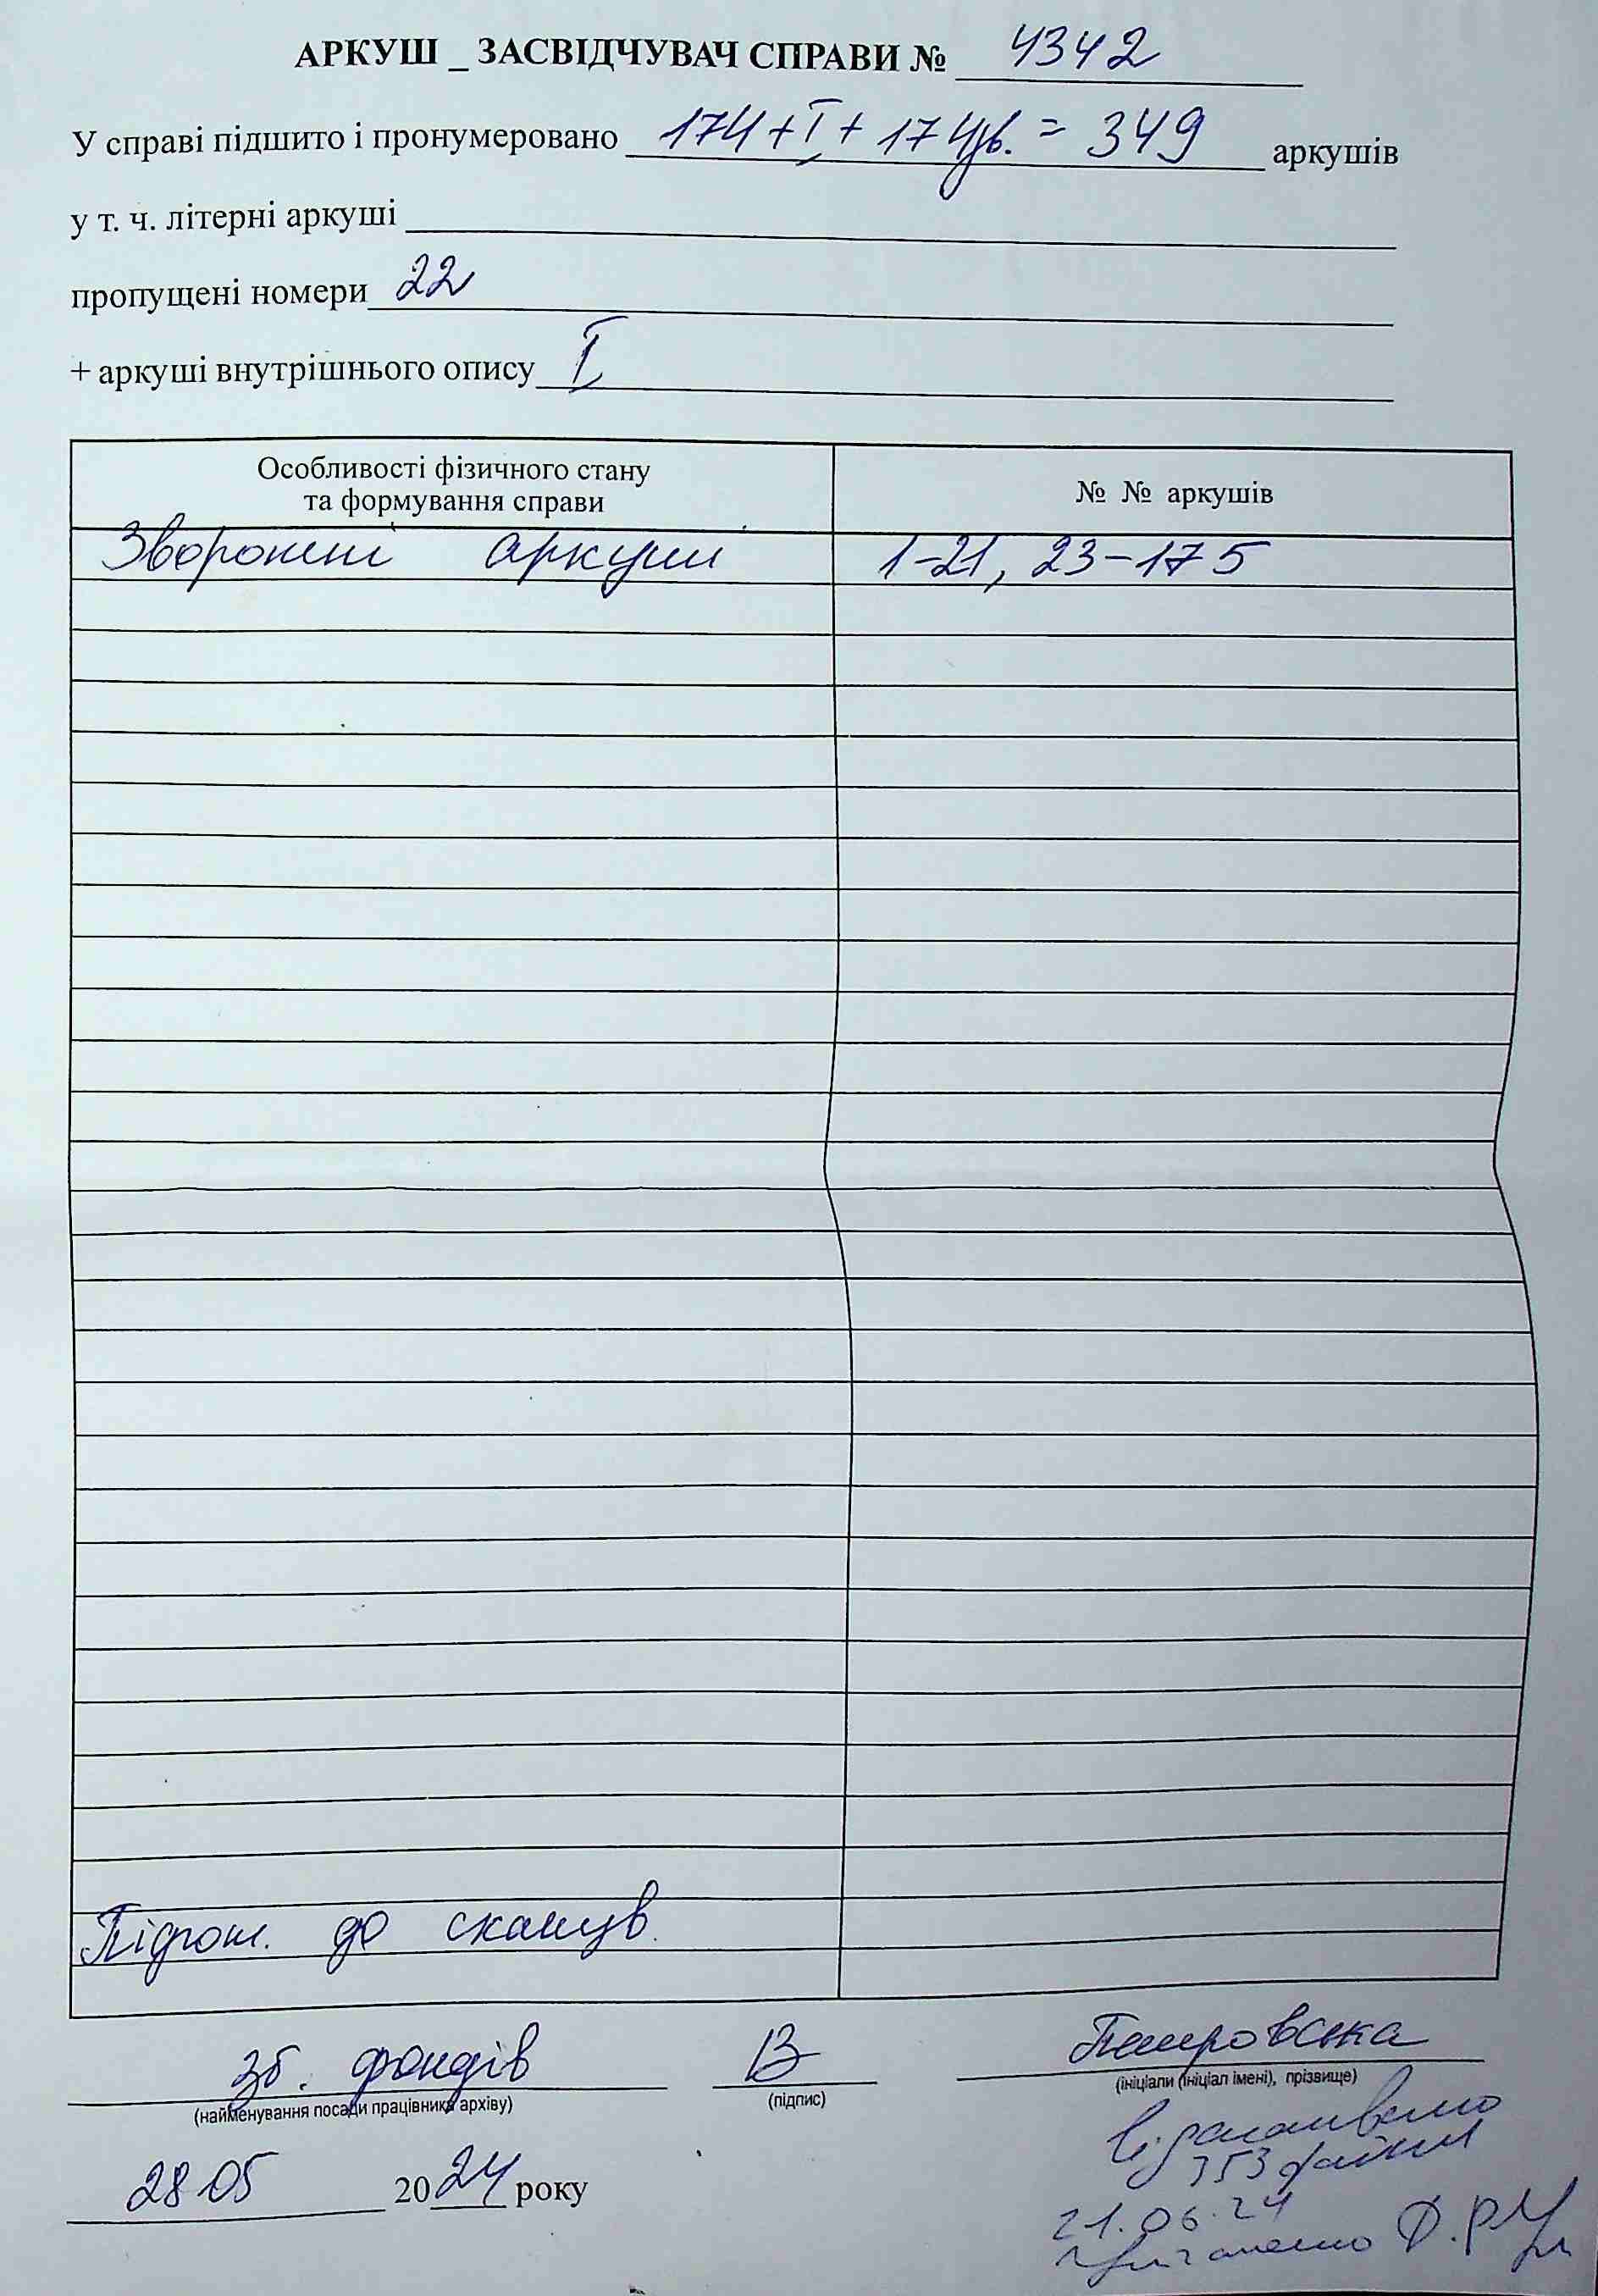 АРКУШ _ ЗАСВІДЧУВАЧ СПРАВИ № 4342
У справі підшито і пронумеровано 174 + I + 174зв. = 349 аркушів
у т. ч. літерні аркуші
пропущені номери 22
+ аркуші внутрішнього опису I
Особливості фізичного стану
та формування справи
№ № аркушів
Зворотні аркуші 1-21, 23-175
Підгот. до сканув.
зб. фондів В Петровська
(найменування посади працівника архіву) (підпис) (ініціали (ініціал імені), прізвище)
28 05 2024 року
Відскановано
353 файли
21.06.24